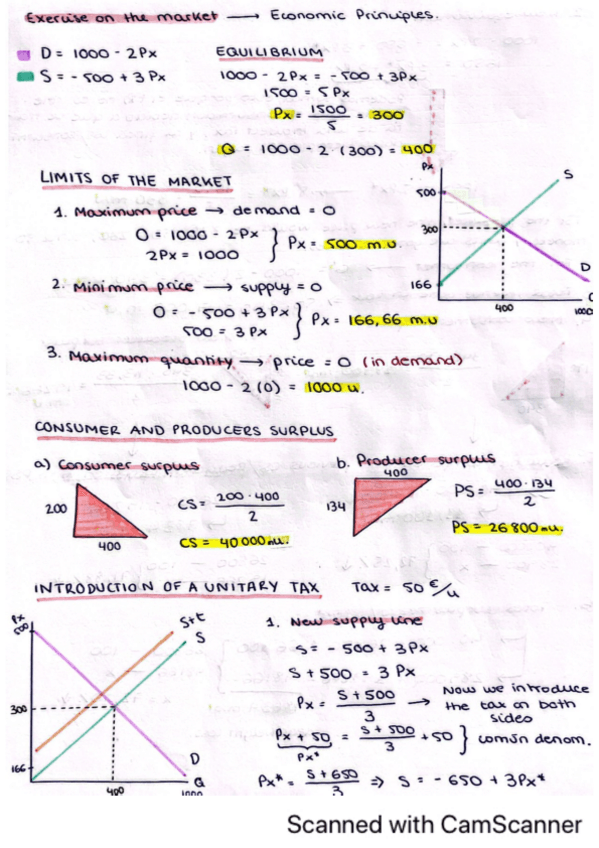 Exercise on the market → Economic Principles.
D = 1000 - 2Px
S = - 500 + 3 Px
EQUILIBRIUM
1000 - 2Px = - 500 + 3Px
1500 = 5 Px
Px = 1500/5 = 300
Q = 1000 - 2 · (300) = 400
Px
500
300
166
S
D
Q
400
1000
LIMITS OF THE MARKET
1. Maximum price → demand = 0
0 = 1000 - 2Px
2Px = 1000
} Px = 500 m.u.
2. Minimum price → supply = 0
0 = - 500 + 3 Px
500 = 3 Px
} Px = 166,66 m.u
3. Maximum quantity → price = 0 (in demand)
1000 - 2 (0) = 1000 u.
CONSUMER AND PRODUCERS SURPLUS
a) Consumer surplus
200
400
CS = 200 · 400 / 2
CS = 40 000 mu.
b. Producer surplus
400
134
PS = 400 · 134 / 2
PS = 26 800 mu.
INTRODUCTION OF A UNITARY TAX
Tax = 50 €/u
Px
500
300
166
S+t
S
D
Q
400
1000
1. New supply line
S = - 500 + 3Px
S + 500 = 3 Px
Px = S + 500 / 3 → Now we introduce
the tax on both
sides
Px + 50 = S + 500 / 3 + 50 } común denom.
Px*
Px* = S + 650 / 3 ⇒ S = - 650 + 3Px*
Scanned with CamScanner